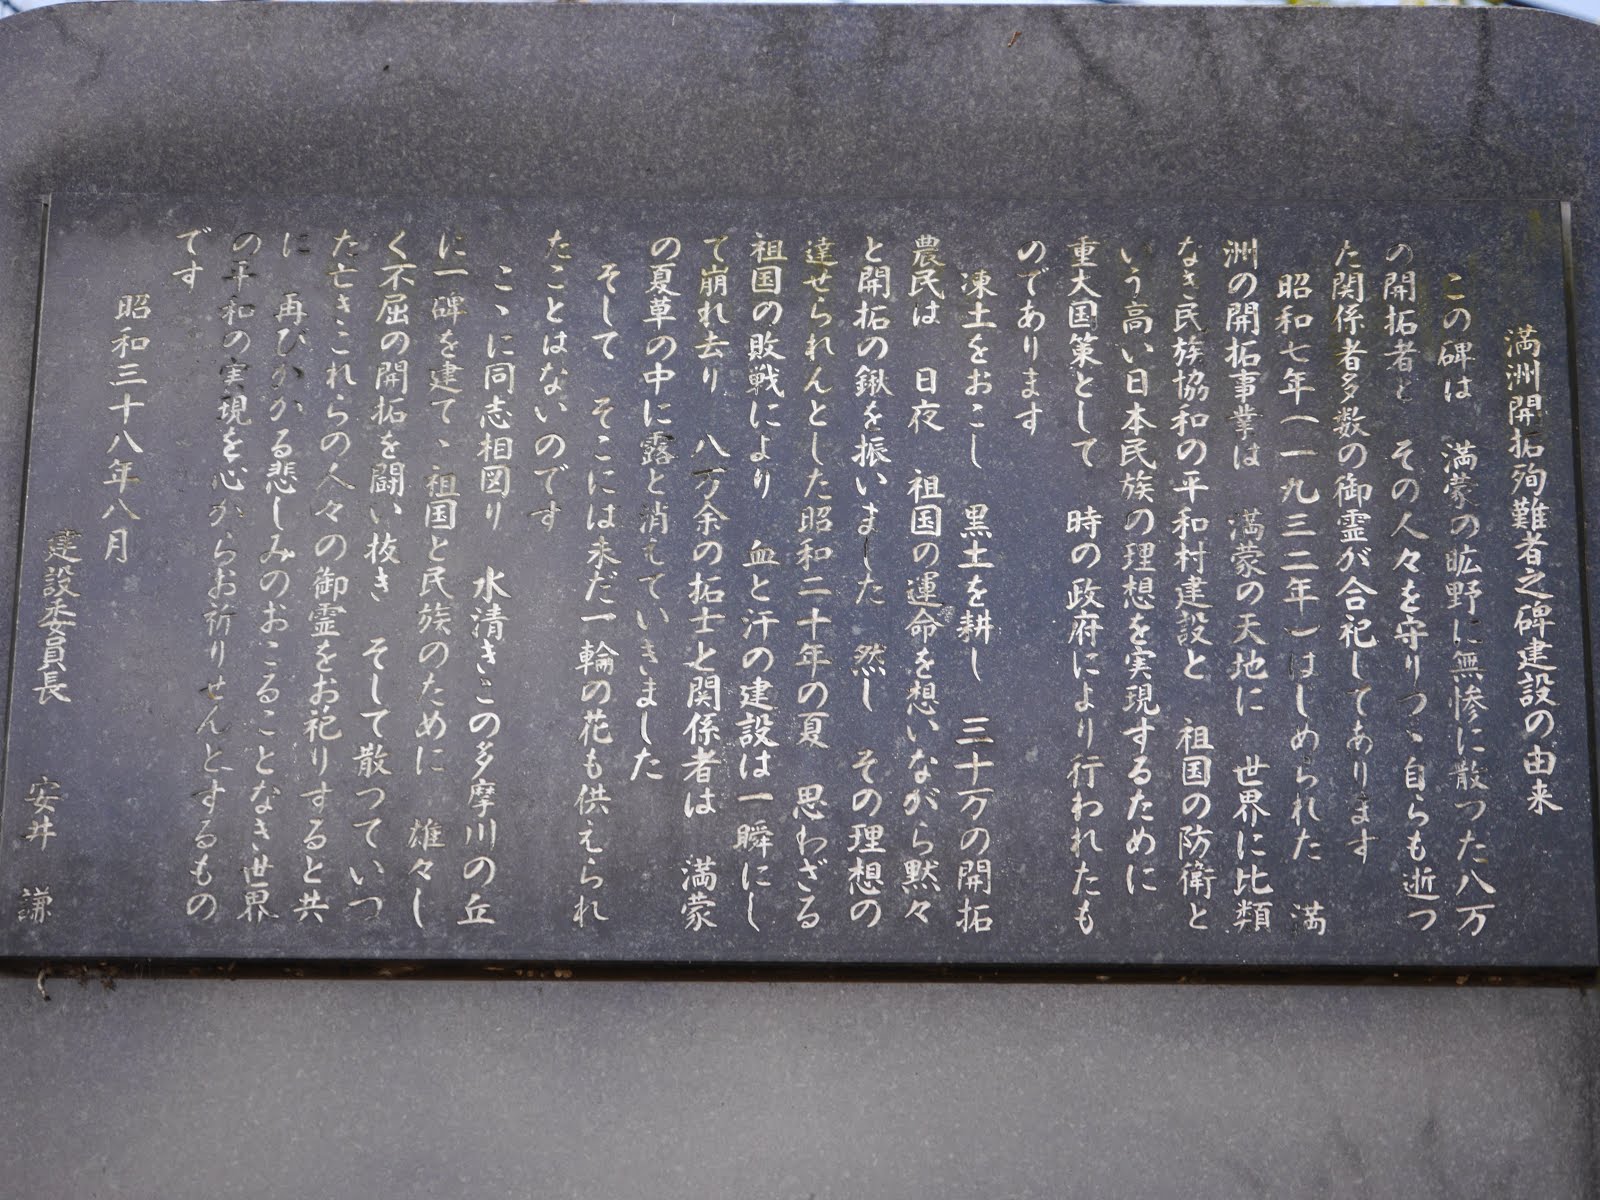 満洲開拓殉難者之碑建設の由来
この碑は 満蒙の曠野に無惨に散つた八万
の開拓者と その人々を守りつヽ自らも逝つ
た関係者多数の御霊が合祀してあります
昭和七年（一九三二年）はじめられた 満
洲の開拓事業は 満蒙の天地に 世界に比類
なき民族協和の平和村建設と 祖国の防衛と
いう高い日本民族の理想を実現するために
重大国策として 時の政府により行われたも
のであります
凍土をおこし 黒土を耕し 三十万の開拓
農民は 日夜 祖国の運命を想いながら黙々
と開拓の鍬を振いました 然し その理想の
達せられんとした昭和二十年の夏 思わざる
祖国の敗戦により 血と汗の建設は一瞬にし
て崩れ去り 八万余の拓士と関係者は 満蒙
の夏草の中に露と消えていきました
そして そこには未だ一輪の花も供えられ
たことはないのです
こヽに同志相図り 水清きこの多摩川の丘
に一碑を建てヽ祖国と民族のために 雄々し
く不屈の開拓を闘い抜き そして散つていつ
た亡きこれらの人々の御霊をお祀りすると共
に 再びかかる悲しみのおこることなき世界
の平和の実現を心からお祈りせんとするもの
です
昭和三十八年八月
建設委員長 安井 謙